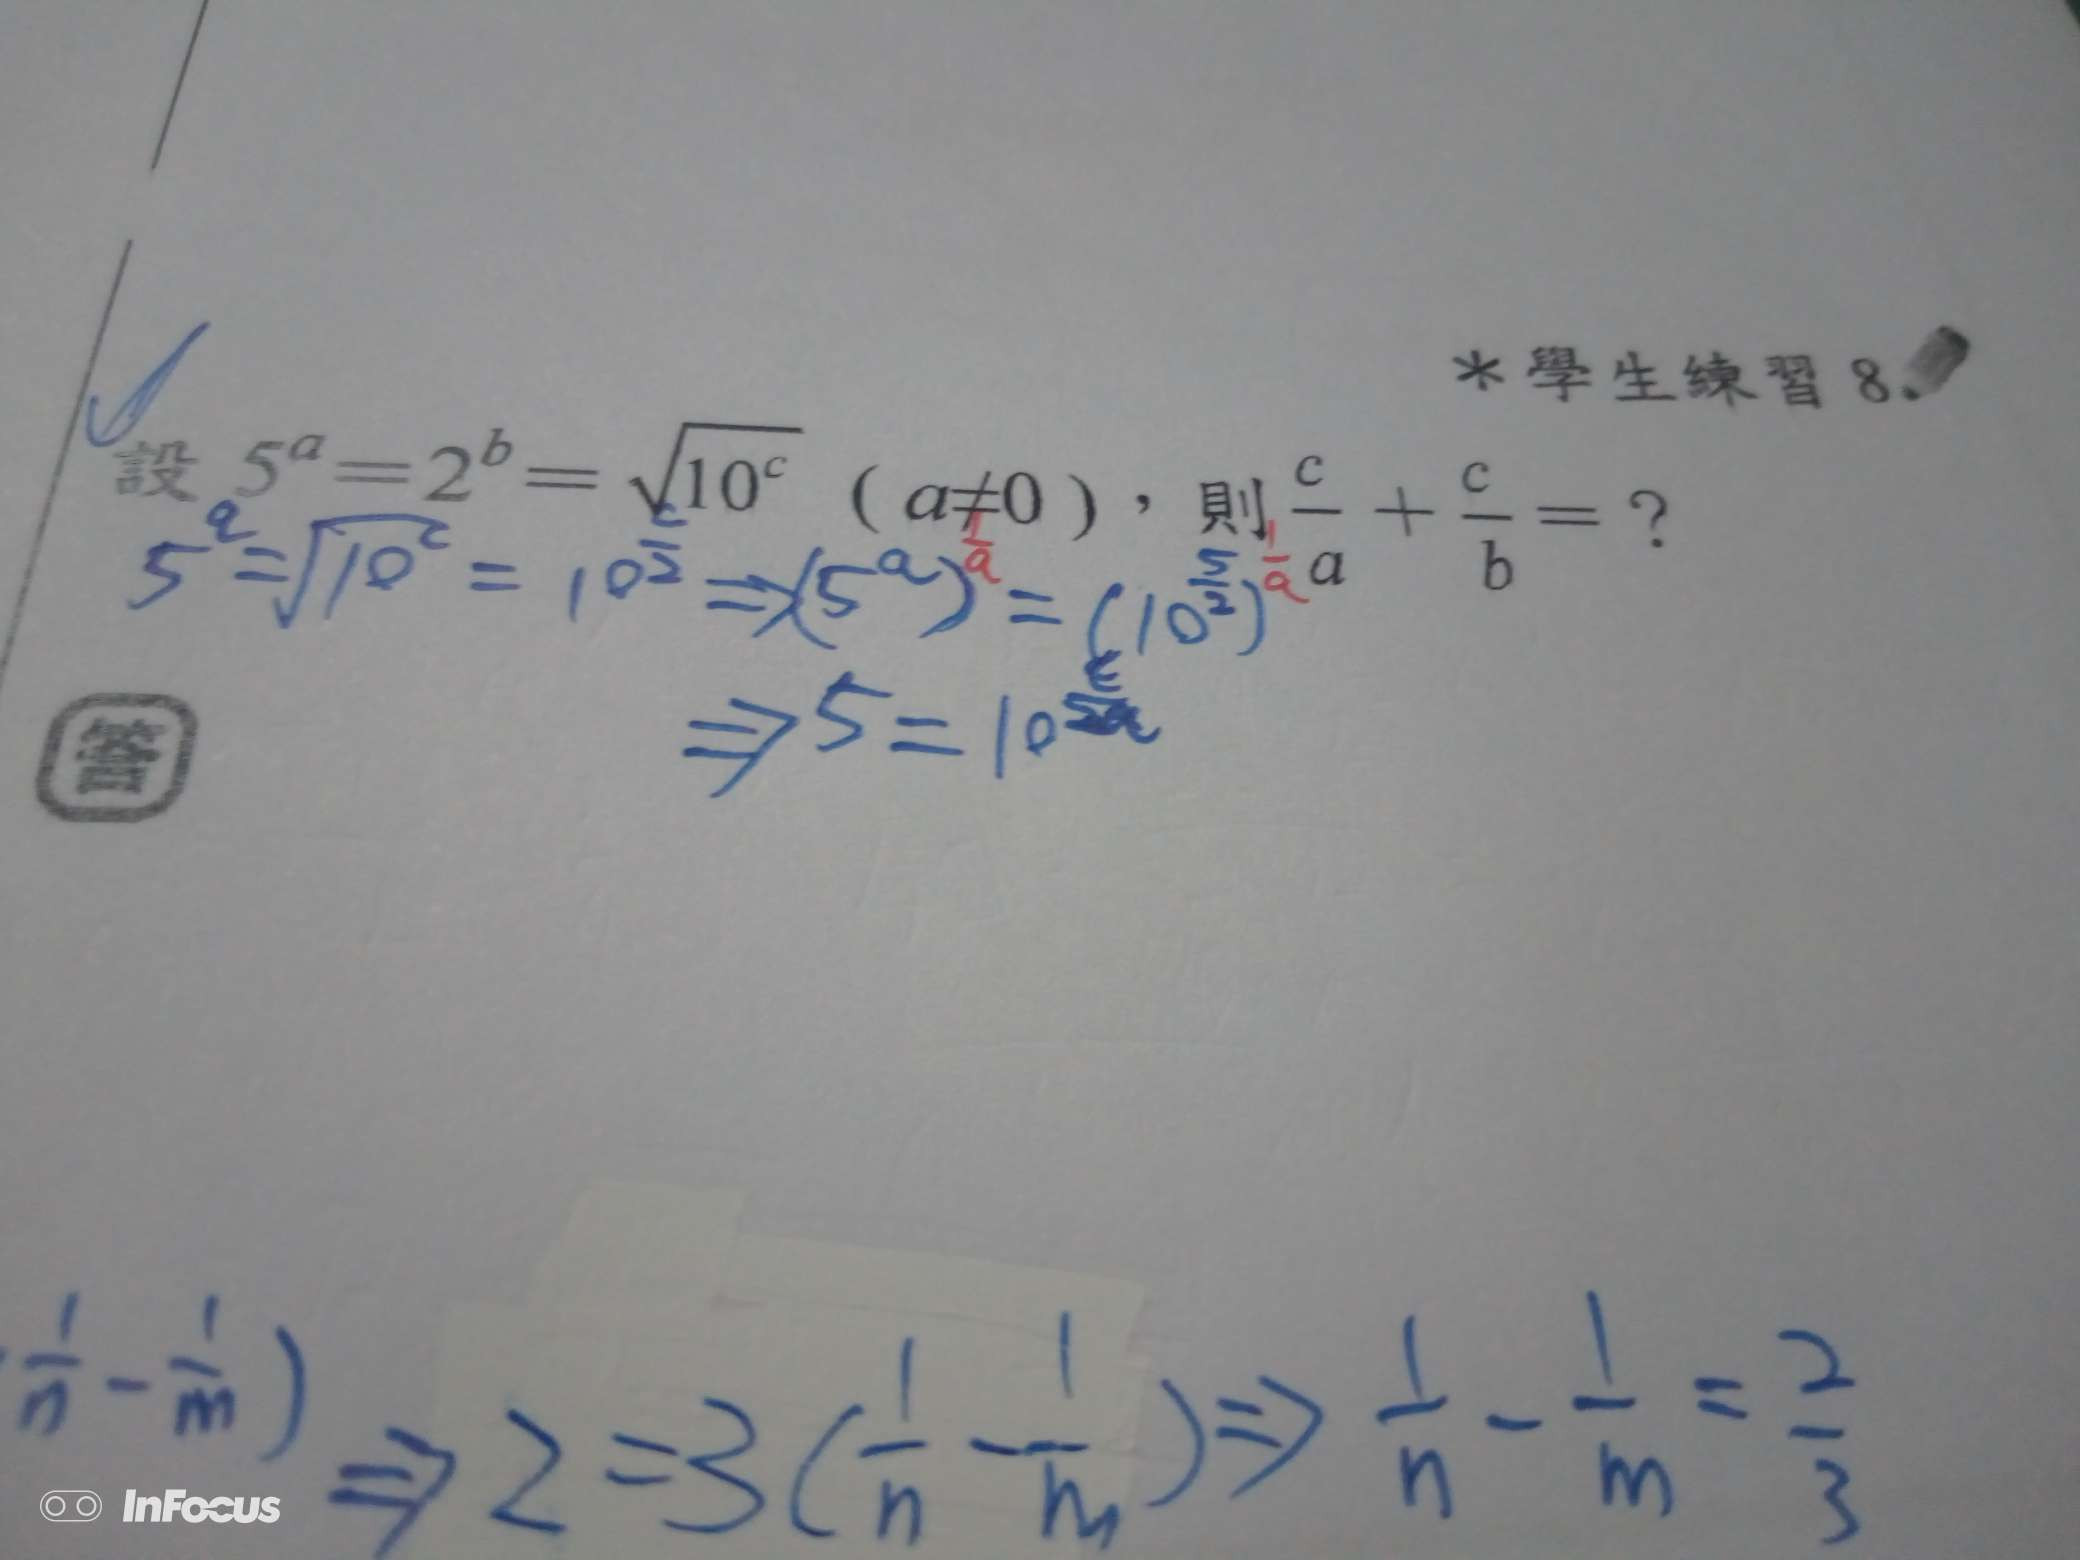 *學生練習 8.
設 5^a = 2^b = √(10^c) ( a≠0 ), 則 c/a + c/b = ?
5^a = √(10^c) = 10^(c/2) ⇒ (5^a)^(1/a) = (10^(5/2))^(1/a)
答
⇒ 5 = 10
1/n - 1/m ) ⇒ 2 = 3 ( 1/n - 1/m ) ⇒ 1/n - 1/m = 2/3
InFocus